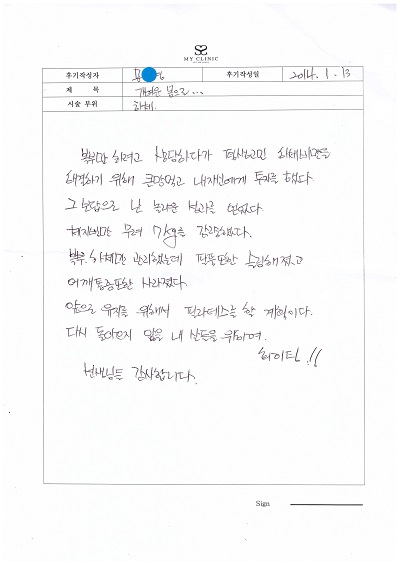 MY CLINIC
후기작성자
후기작성일 2014. 1. 13
제 목 가벼운 몸으로...
시술 부위 하체.
복부만 하려고 상담하다가 평생고민 하체비만을
해결하기 위해 큰맘먹고 내자신에게 투자를 했다.
그 보답으로 난 놀라운 결과를 얻었다.
현재까지 무려 7kg을 감량했다.
복부. 하체만 관리했는데 팔뚝또한 슬림해졌고
어깨통증또한 사라졌다.
앞으로 유지를 위해서 필라테스를 할 계획이다.
다시 돌아오지 않을 내 살들을 위하여.
화이팅!!
선생님들 감사합니다.
Sign